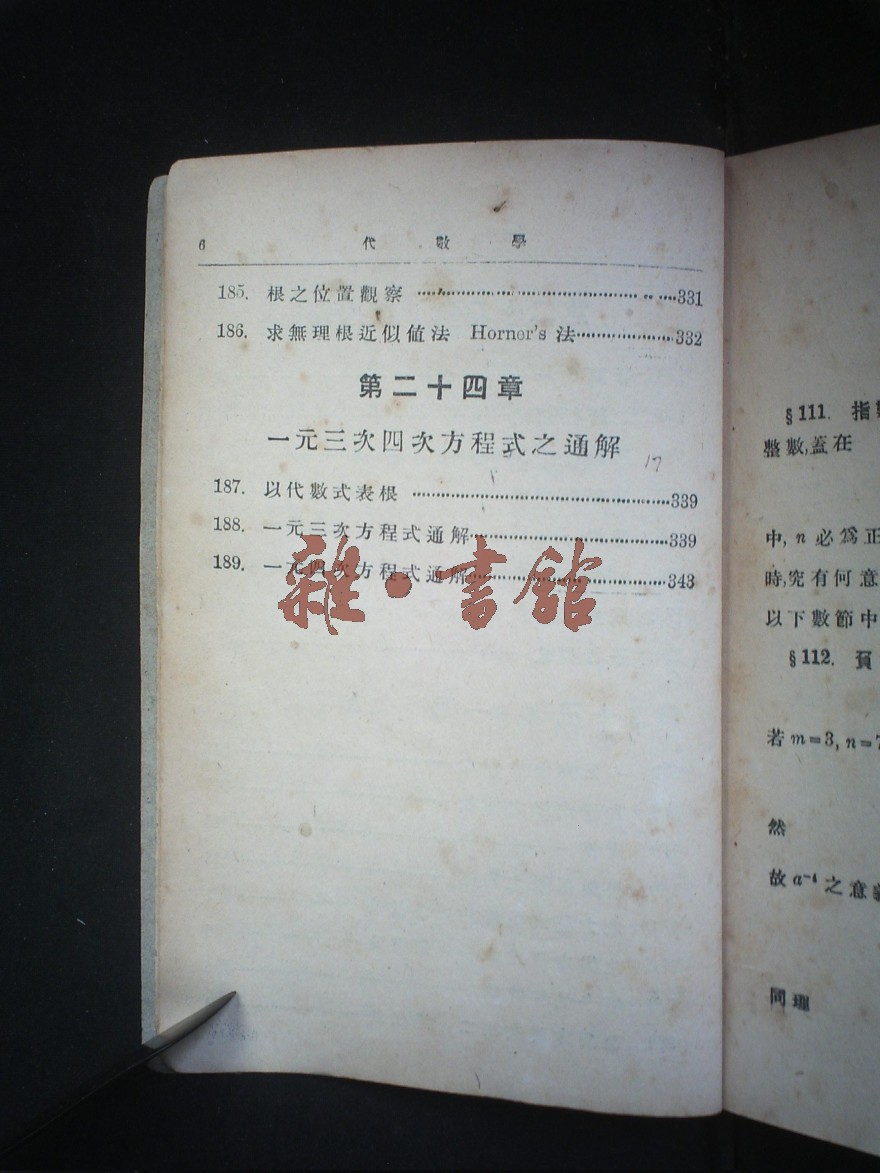 6 代數學
185. 根之位置觀察 ……331
186. 求無理根近似値法 Horner's 法……332
第二十四章
一元三次四次方程式之通解
17
187. 以代數式表根 ……339
188. 一元三次方程式通解……339
189. 一元四次方程式通解……343
雜·書館
§111. 指
整數,蓋在
中, n 必爲正
時,究有何意
以下數節中
§112. 負
若 m=3, n=7
然
故 a⁻⁴ 之意義
同理